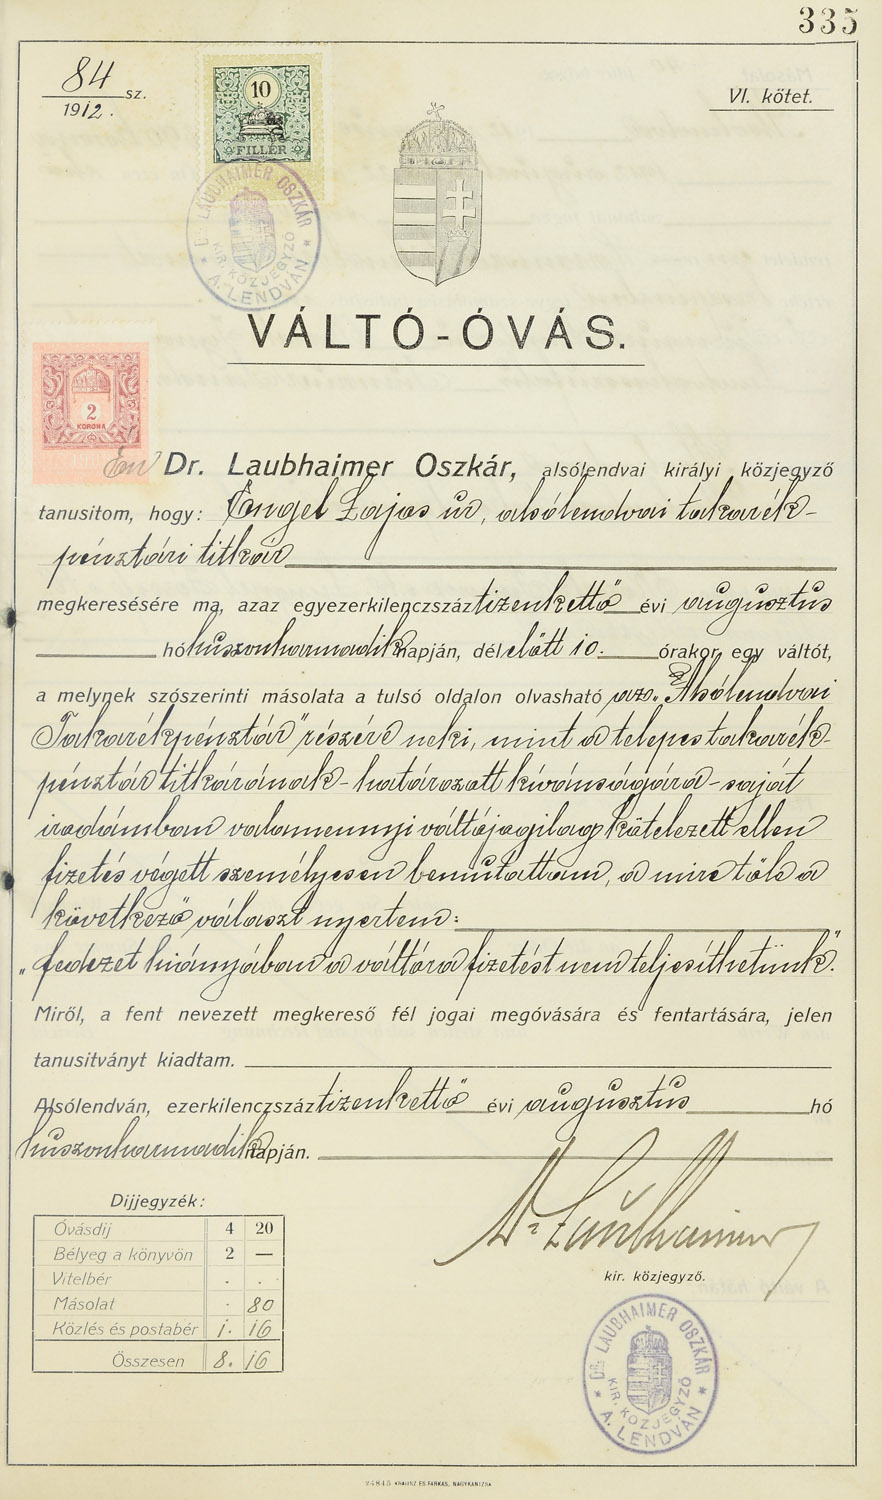 335
84 sz.
1912.
VI. kötet.
10
FILLÉR
Dr. LAUBHAIMER OSZKÁR
KIR. KÖZJEGYZŐ
A. LENDVÁN
VÁLTÓ-ÓVÁS.
2
KORONA
Én Dr. Laubhaimer Oszkár, alsólendvai királyi közjegyző
tanusitom, hogy: Engel Lajos úr, alsólendvai takarék-
pénztári titkár
megkeresésére ma, azaz egyezerkilenczszáz tizenkettő évi augusztus
hó huszonharmadik napján, dél előtt 10. órakor egy váltót,
a melynek szószerinti másolata a tulsó oldalon olvasható az „Alsólendvai
Takarékpénztár" részére neki, mint a telepes takarék-
pénztár titkárának - határozott kívánságára - saját
irodámban valamennyi váltójogilag kötelezett ellen
fizetés végett személyesen bemutattam, a mire tőle a
következő választ nyertem:
„fedezet hiányában a váltóra fizetést nem teljesíthetünk."
Miről, a fent nevezett megkereső fél jogai megóvására és fentartására, jelen
tanusitványt kiadtam.
Alsólendván, ezerkilenczszáz tizenkettő évi augusztus hó
huszonharmadik napján.
Dr Laubhaimer
kir. közjegyző.
Dijjegyzék:
Óvásdij 4 20
Bélyeg a könyvön 2 —
Vitelbér . .
Másolat . 80
Közlés és postabér 1. 16
Összesen 8. 16
Dr. LAUBHAIMER OSZKÁR
KIR. KÖZJEGYZŐ
A. LENDVÁN
24845 KRAUSZ ÉS FARKAS, NAGYKANIZSA